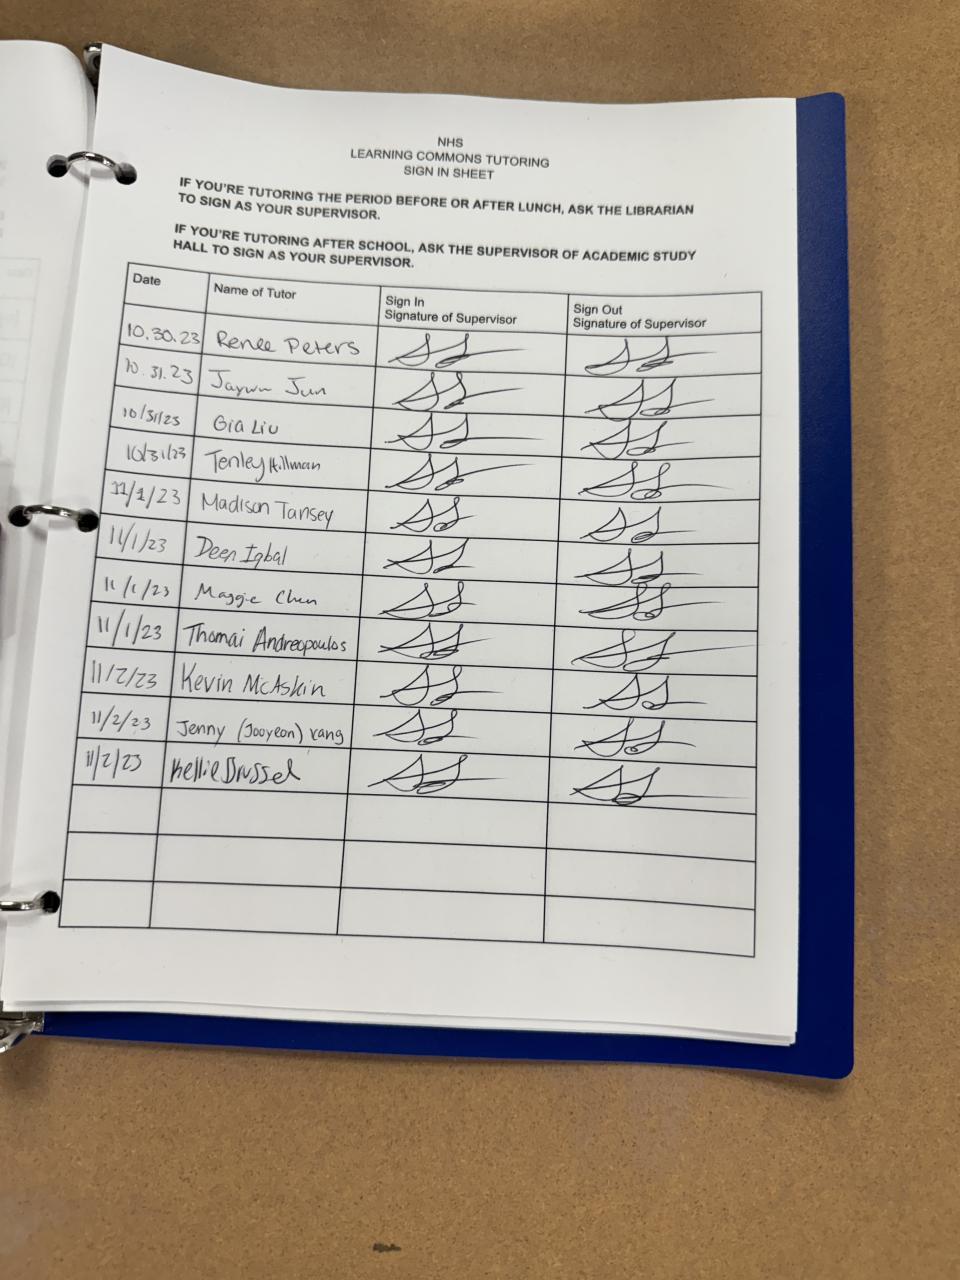 NHS
LEARNING COMMONS TUTORING
SIGN IN SHEET
IF YOU'RE TUTORING THE PERIOD BEFORE OR AFTER LUNCH, ASK THE LIBRARIAN
TO SIGN AS YOUR SUPERVISOR.
IF YOU'RE TUTORING AFTER SCHOOL, ASK THE SUPERVISOR OF ACADEMIC STUDY
HALL TO SIGN AS YOUR SUPERVISOR.
Date Name of Tutor Sign In Sign Out
Signature of Supervisor Signature of Supervisor
10.30.23 Renee Peters
10.31.23 Jaywn Jun
10/31/23 Gia Liu
10/31/23 Tenley Hillman
11/1/23 Madison Tansey
11/1/23 Deen Iqbal
11/1/23 Maggie Chen
11/1/23 Thomai Andreopoulos
11/2/23 Kevin McAskin
11/2/23 Jenny (Jooyeon) Yang
11/2/23 Kellie Drussel